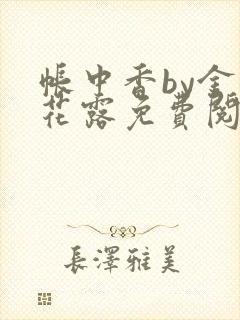 帳中香by金
花露免費閱
長澤雅美